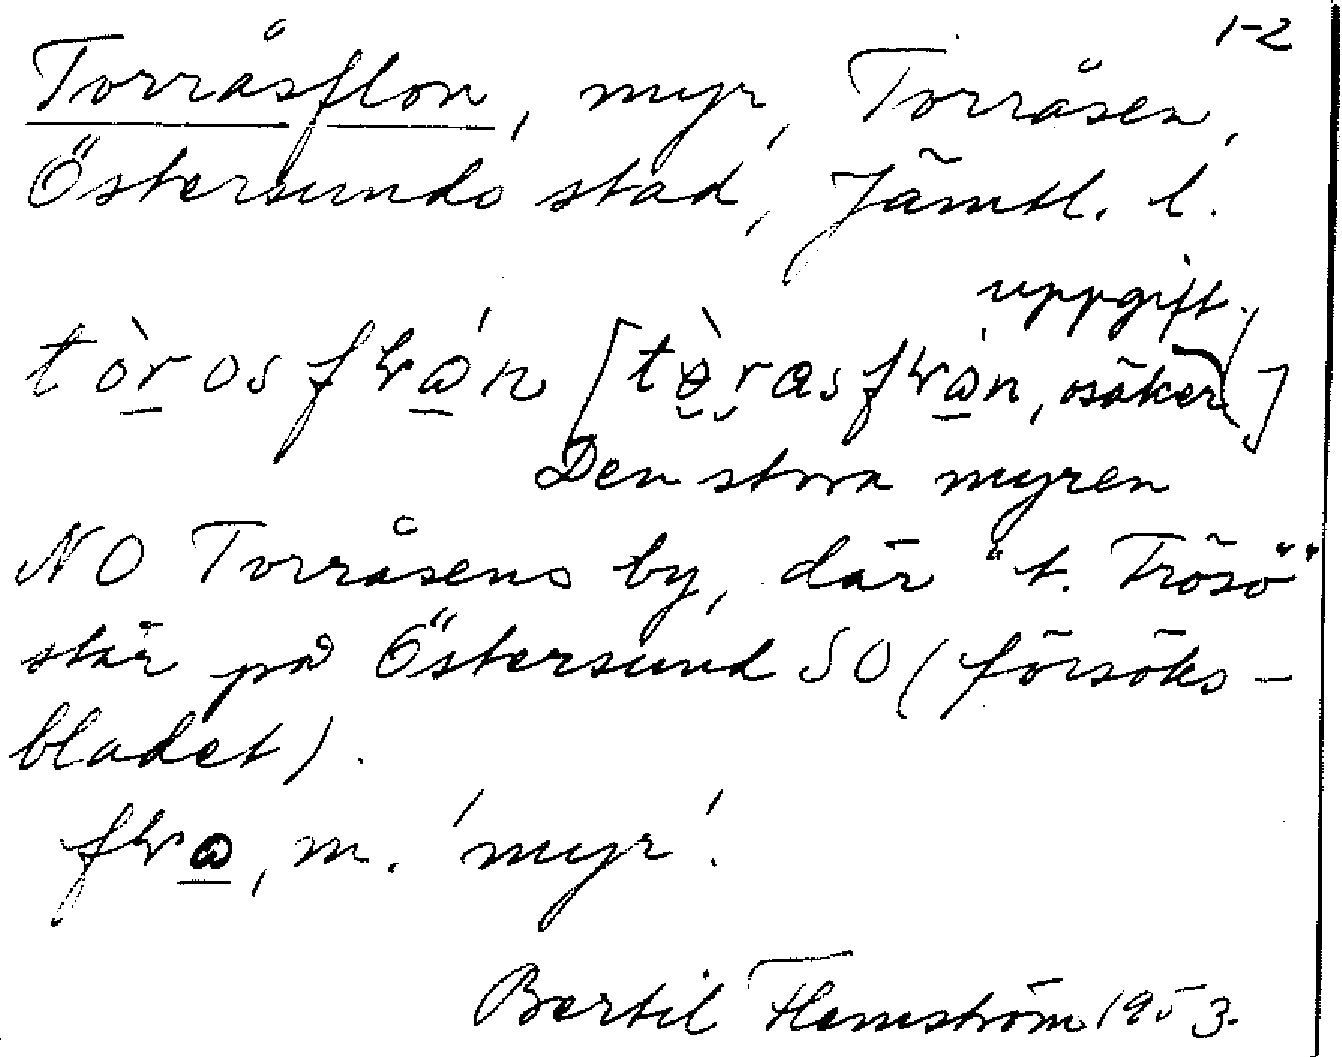 1-2
Torråsflon, myr, Torråsen,
Östersunds stad, Jämtl. l.
uppgift
osäker
Den stora myren
NO Torråsens by, där "t. Frösö"
står på Östersund SO (försöks-
bladet).
m. 'myr'.
Bertil Flemström 1953.